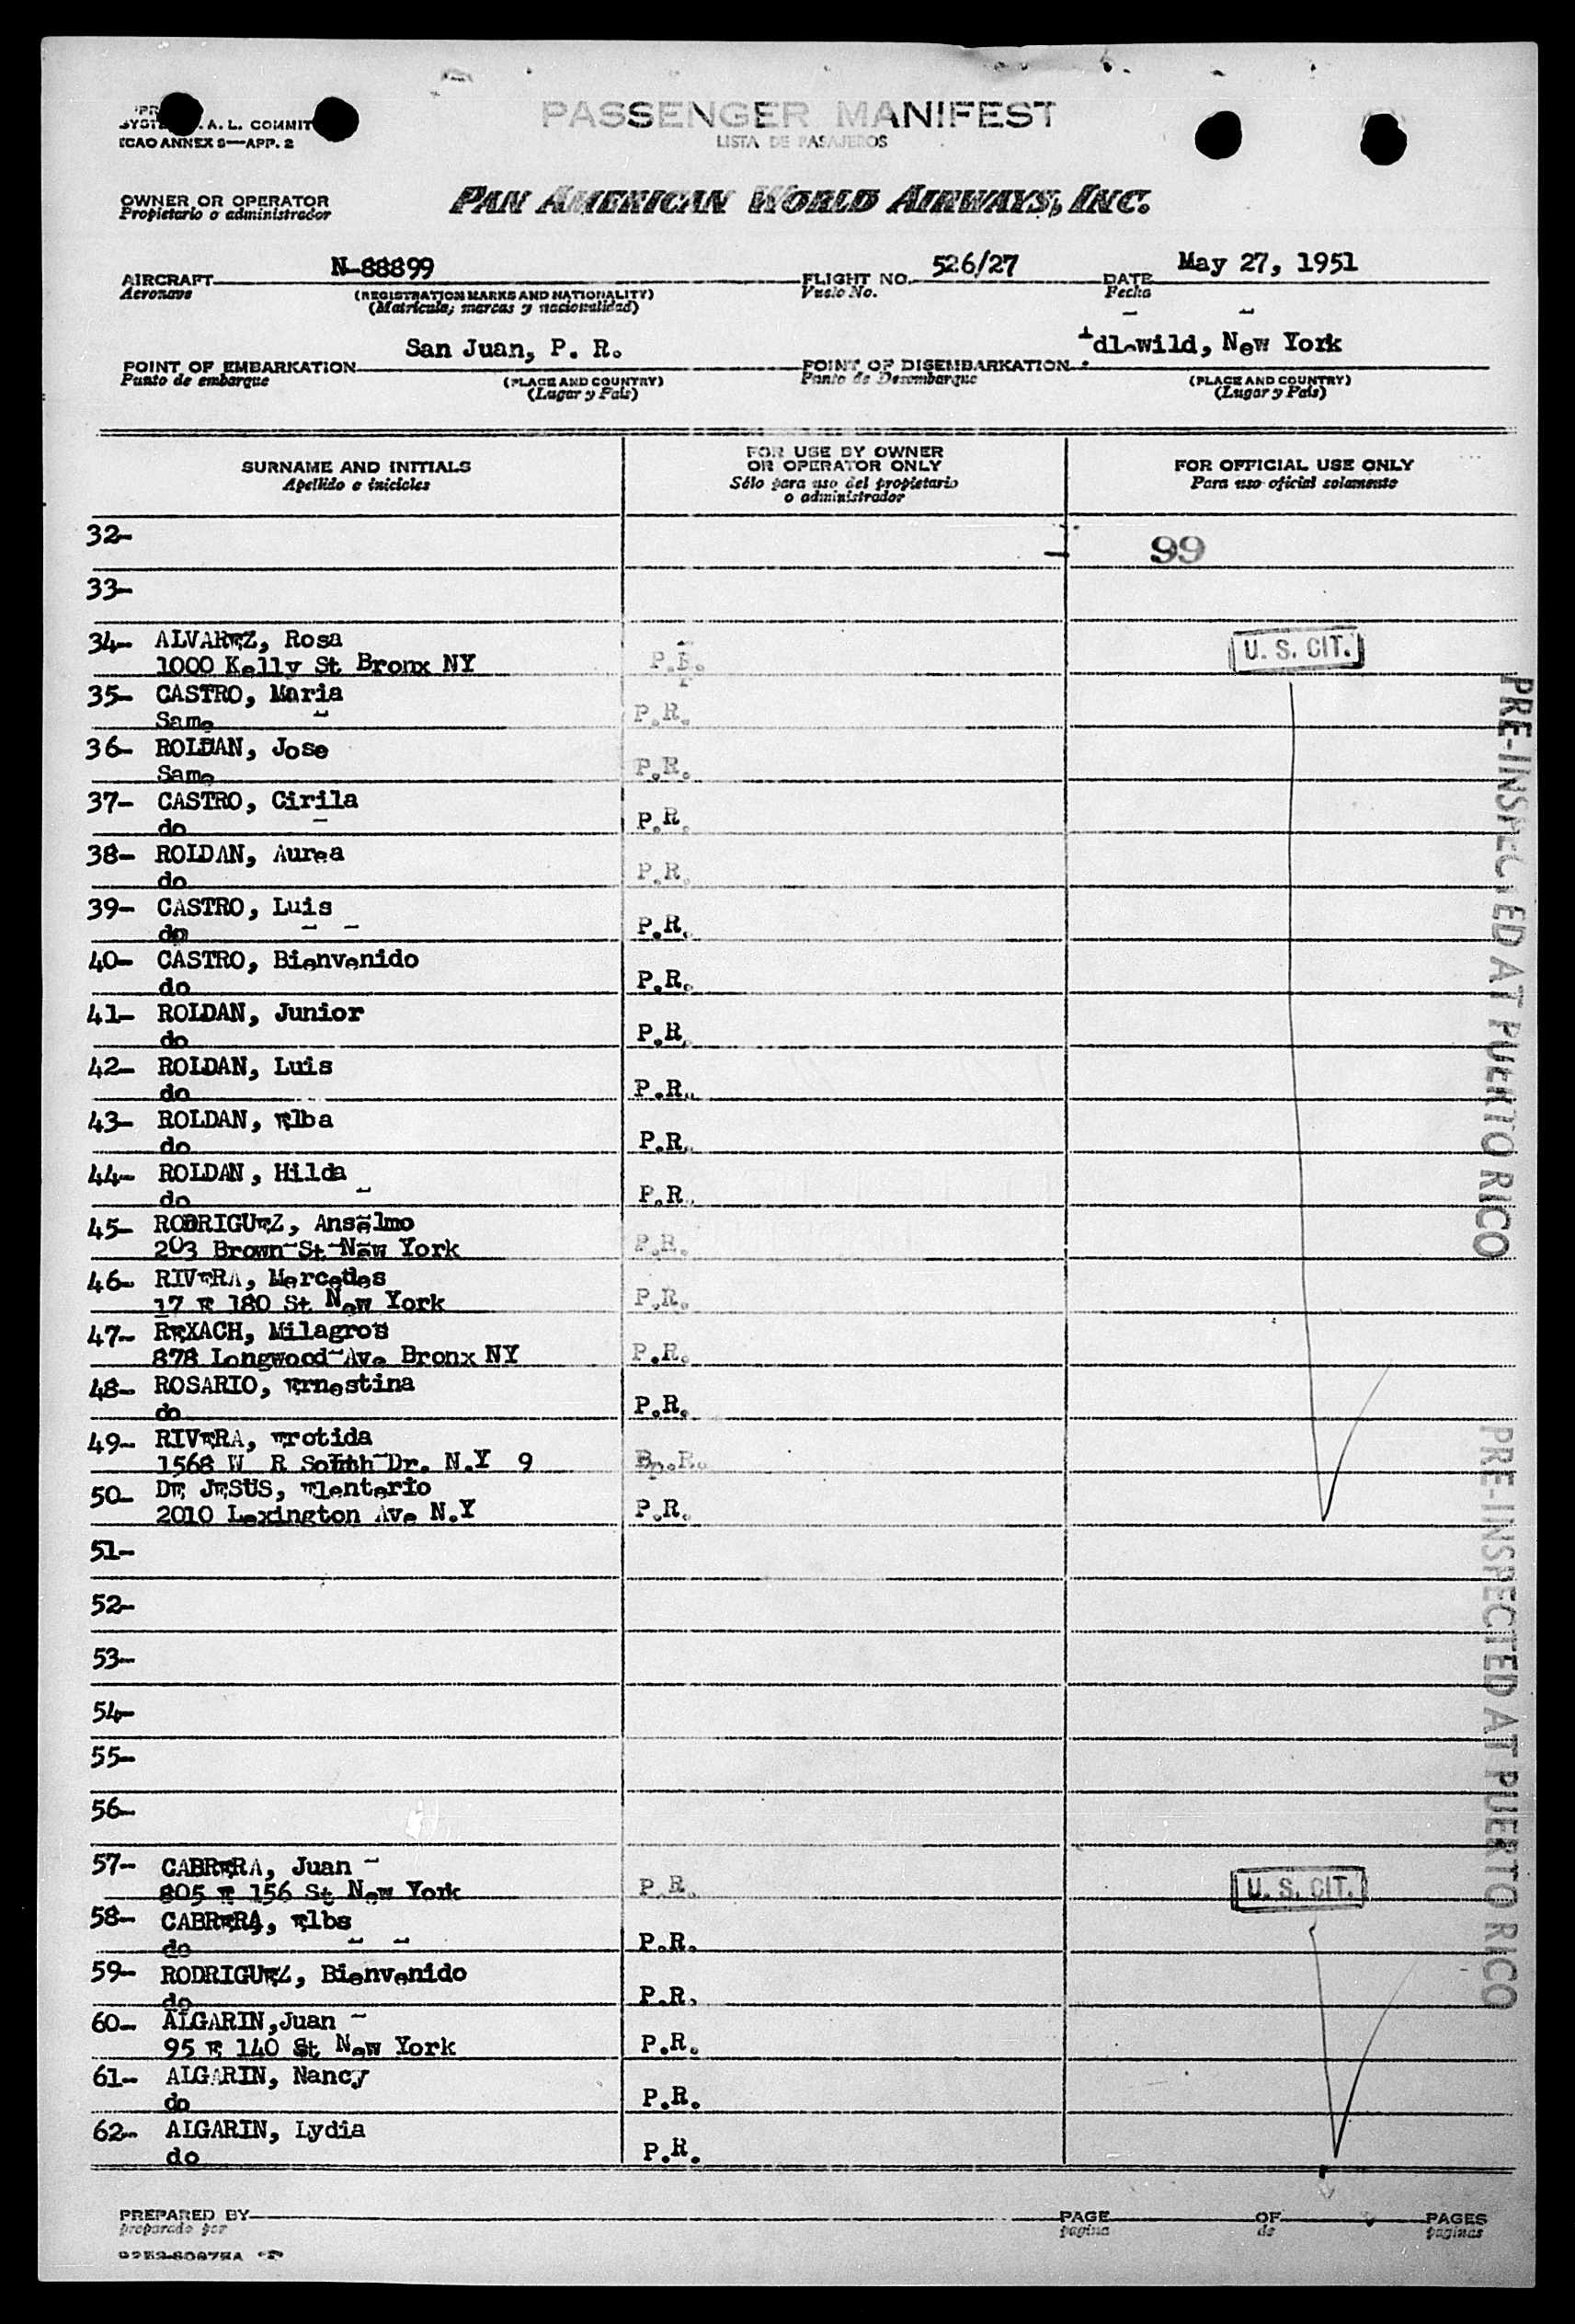 A. L. COMMIT
ICAO ANNEX 9—APP. 2
PASSENGER MANIFEST
LISTA DE PASAJEROS
OWNER OR OPERATOR
Propietario o administrador
PAN AMERICAN WORLD AIRWAYS, INC.
AIRCRAFT N-88899 FLIGHT NO. 526/27 DATE May 27, 1951
Aeronave (REGISTRATION MARKS AND NATIONALITY) Vuelo No. Fecha
(Matricula, marcas y nacionalidad)
POINT OF EMBARKATION San Juan, P. R. POINT OF DISEMBARKATION Idlewild, New York
Punto de embarque (PLACE AND COUNTRY) Punto de Desembarque (PLACE AND COUNTRY)
(Lugar y País) (Lugar y País)
SURNAME AND INITIALS FOR USE BY OWNER OR OPERATOR ONLY FOR OFFICIAL USE ONLY
Apellido e iniciales Sólo para uso del propietario o administrador Para uso oficial solamente
32- 99
33-
34- ALVAREZ, Rosa U. S. CIT.
1000 Kelly St Bronx NY P.R.
35- CASTRO, Maria
Same P.R.
36- ROLDAN, Jose
Same P.R.
37- CASTRO, Cirila
do P.R.
38- ROLDAN, Aurea
do P.R.
39- CASTRO, Luis
do P.R.
40- CASTRO, Bienvenido
do P.R.
41- ROLDAN, Junior
do P.R.
42- ROLDAN, Luis
do P.R.
43- ROLDAN, Elba
do P.R.
44- ROLDAN, Hilda
do P.R.
45- RODRIGUEZ, Anselmo
203 Brown St New York P.R.
46- RIVERA, Mercedes
17 E 180 St New York P.R.
47- REXACH, Milagros
878 Longwood Ave Bronx NY P.R.
48- ROSARIO, Ernestina
do P.R.
49- RIVERA, Erotida
1568 W R South Dr. N.Y 9 P.R.
50- DE JESUS, Elenterio
2010 Lexington Ave N.Y P.R.
51-
52-
53-
54-
55-
56-
57- CABRERA, Juan U. S. CIT.
805 E 156 St New York P.R.
58- CABRERA, Elbs
do P.R.
59- RODRIGUEZ, Bienvenido
do P.R.
60- ALGARIN,Juan
95 E 140 St New York P.R.
61- ALGARIN, Nancy
do P.R.
62- ALGARIN, Lydia
do P.R.
PRE-INSPECTED AT PUERTO RICO
PRE-INSPECTED AT PUERTO RICO
PREPARED BY PAGE OF PAGES
preparado por pagina de paginas